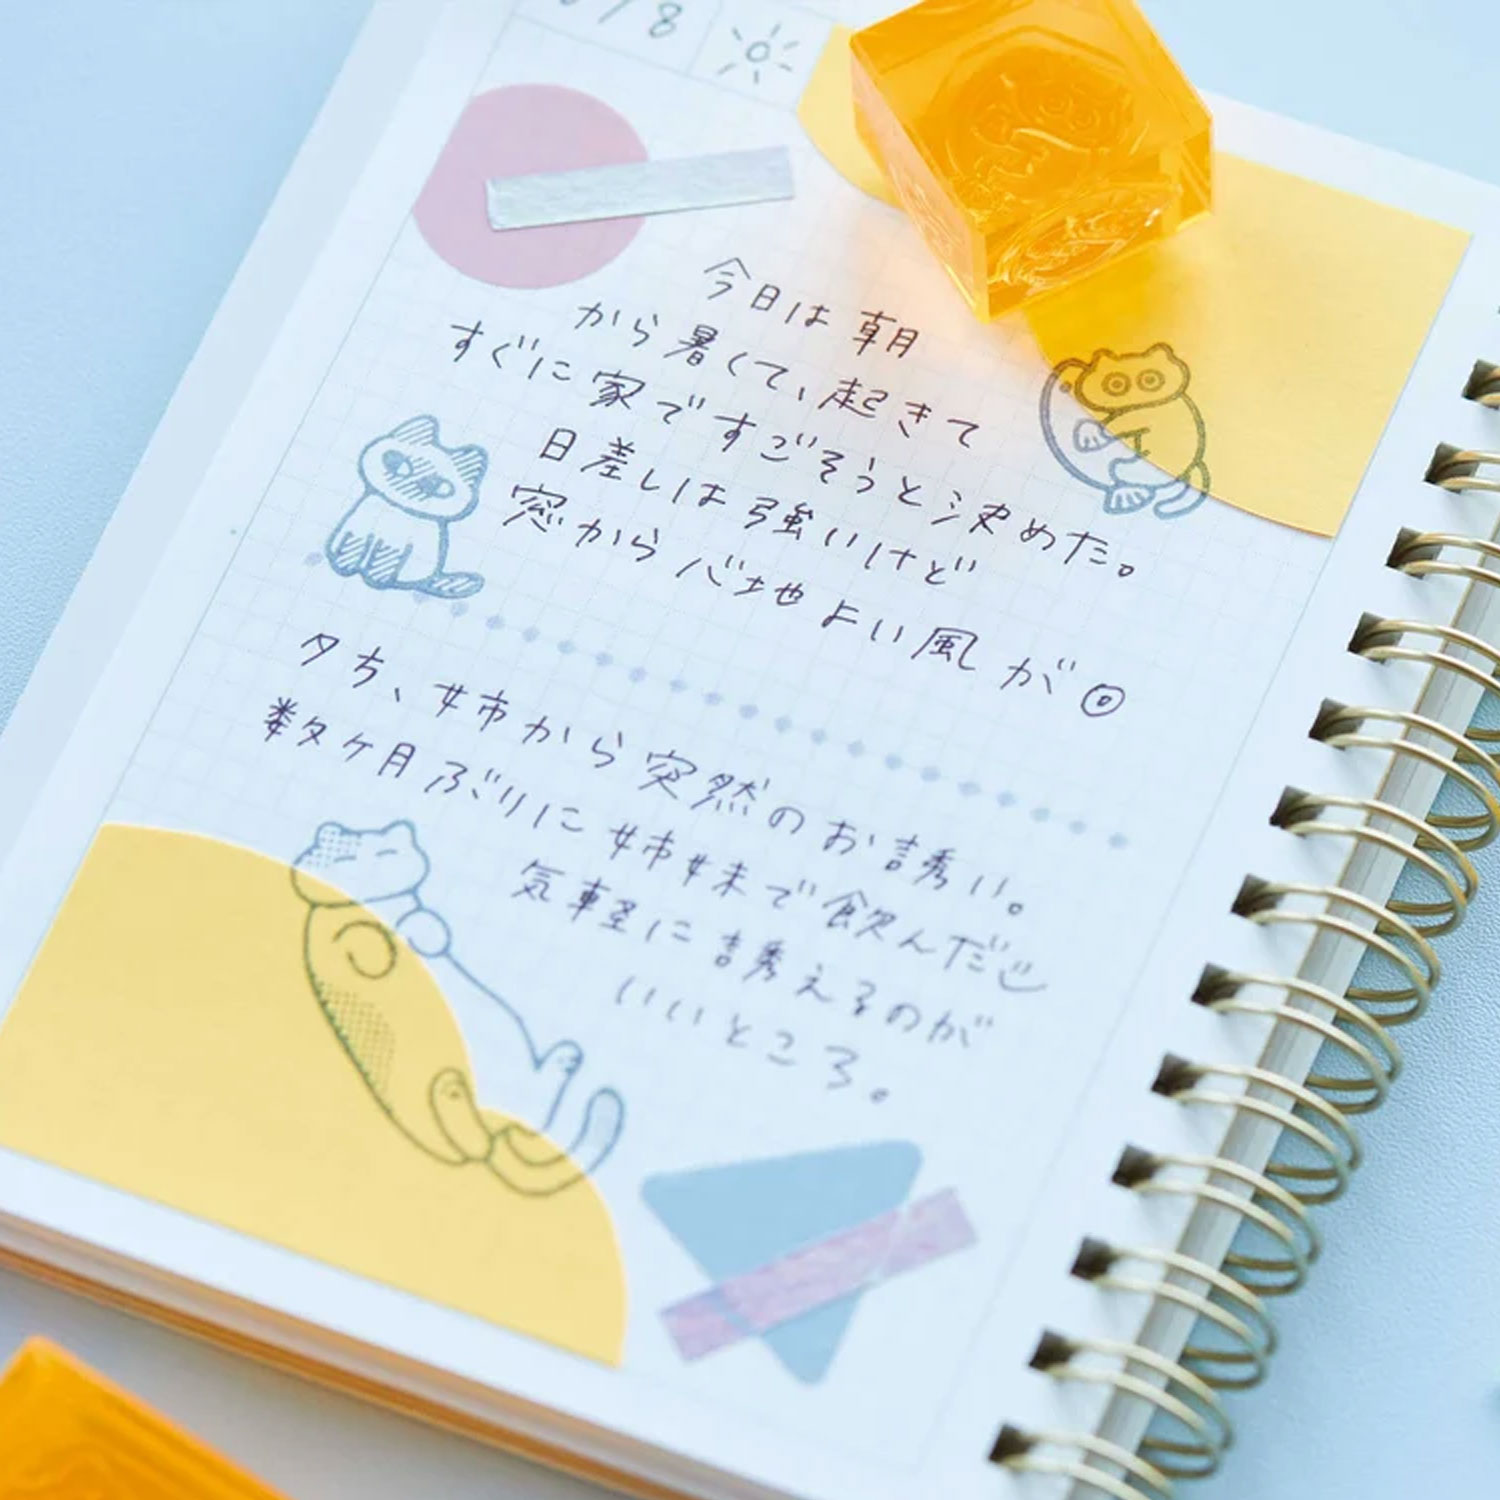 /8
今日は朝
から暑くて、起きて
すぐに家ですごそうと決めた。
日差しは強いけど
窓から心地よい風が◎
夕ち、姉から突然のお誘い。
数ケ月ぶりに姉妹で飲んだ
気軽に誘えるのが
いいところ。